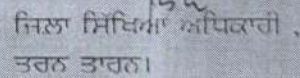 ਜਿਲਾ ਸਿੱਖਿਆ ਅਧਿਕਾਰੀ,
ਤਰਨ ਤਾਰਨ।